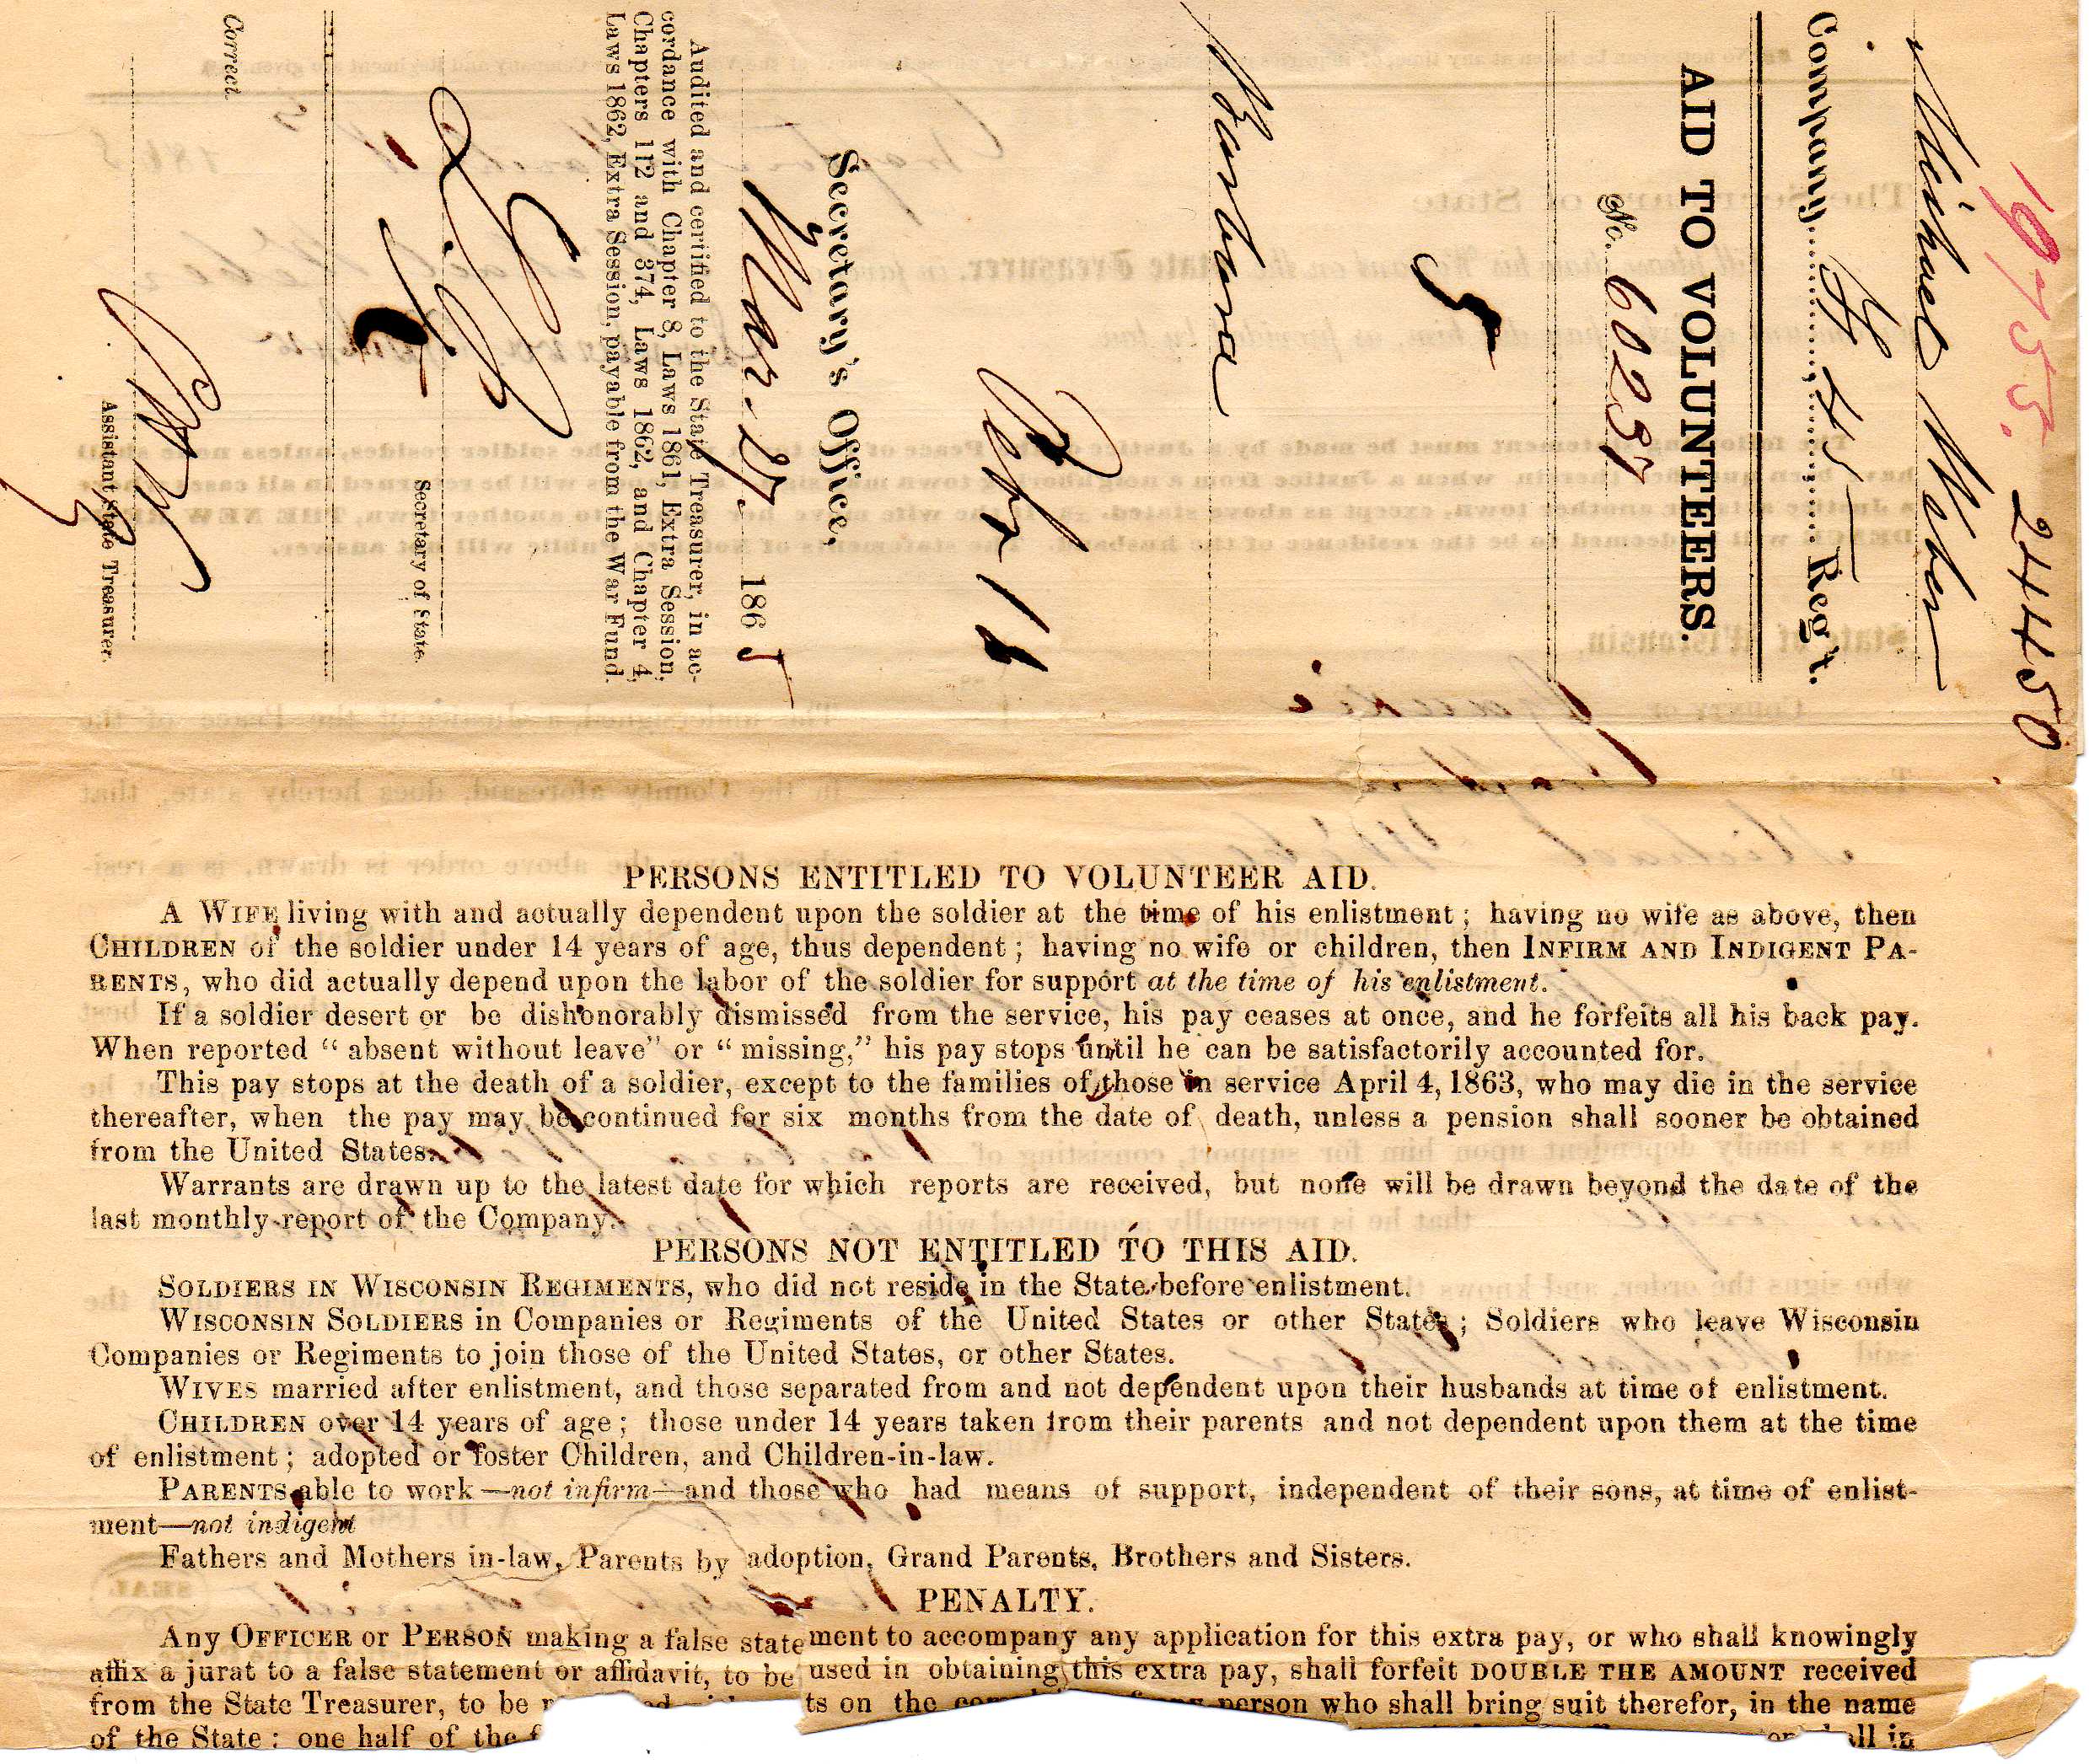 19755. 24450
Michael Weber
Company H 45 Reg't.
AID TO VOLUNTEERS.
No. 60237
5
Barbara
Feby 18
Secretary's Office,
Mar. 27. 1865
Audited and certified to the State Treasurer, in ac-
cordance with Chapter 8, Laws 1861, Extra Session,
Chapters 112 and 374, Laws 1862, and Chapter 4,
Laws 1862, Extra Session, payable from the War Fund.
Secretary of State.
5
Correct.
Assistant State Treasurer.
PERSONS ENTITLED TO VOLUNTEER AID.
A WIFE living with and actually dependent upon the soldier at the time of his enlistment; having no wife as above, then
CHILDREN of the soldier under 14 years of age, thus dependent; having no wife or children, then INFIRM AND INDIGENT PA-
RENTS, who did actually depend upon the labor of the soldier for support at the time of his enlistment.
If a soldier desert or be dishonorably dismissed from the service, his pay ceases at once, and he forfeits all his back pay.
When reported “absent without leave” or “missing,” his pay stops until he can be satisfactorily accounted for.
This pay stops at the death of a soldier, except to the families of those in service April 4, 1863, who may die in the service
thereafter, when the pay may be continued for six months from the date of death, unless a pension shall sooner be obtained
from the United States.
Warrants are drawn up to the latest date for which reports are received, but none will be drawn beyond the date of the
last monthly report of the Company.
PERSONS NOT ENTITLED TO THIS AID.
SOLDIERS IN WISCONSIN REGIMENTS, who did not reside in the State before enlistment.
WISCONSIN SOLDIERS in Companies or Regiments of the United States or other States; Soldiers who leave Wisconsin
Companies or Regiments to join those of the United States, or other States.
WIVES married after enlistment, and those separated from and not dependent upon their husbands at time of enlistment.
CHILDREN over 14 years of age; those under 14 years taken from their parents and not dependent upon them at the time
of enlistment; adopted or foster Children, and Children-in-law.
PARENTS able to work—not infirm—and those who had means of support, independent of their sons, at time of enlist-
ment—not indigent
Fathers and Mothers in-law, Parents by adoption, Grand Parents, Brothers and Sisters.
PENALTY.
Any OFFICER or PERSON making a false statement to accompany any application for this extra pay, or who shall knowingly
affix a jurat to a false statement or affidavit, to be used in obtaining this extra pay, shall forfeit DOUBLE THE AMOUNT received
from the State Treasurer, to be ts on the person who shall bring suit therefor, in the name
of the State: one half of the in